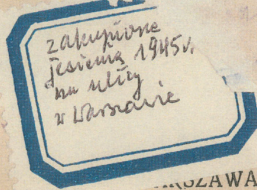 zakupione
jesienią 1945 r.
na ulicy
w Warszawie
RSZAWA